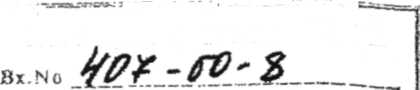 Вх.No 407-00-8